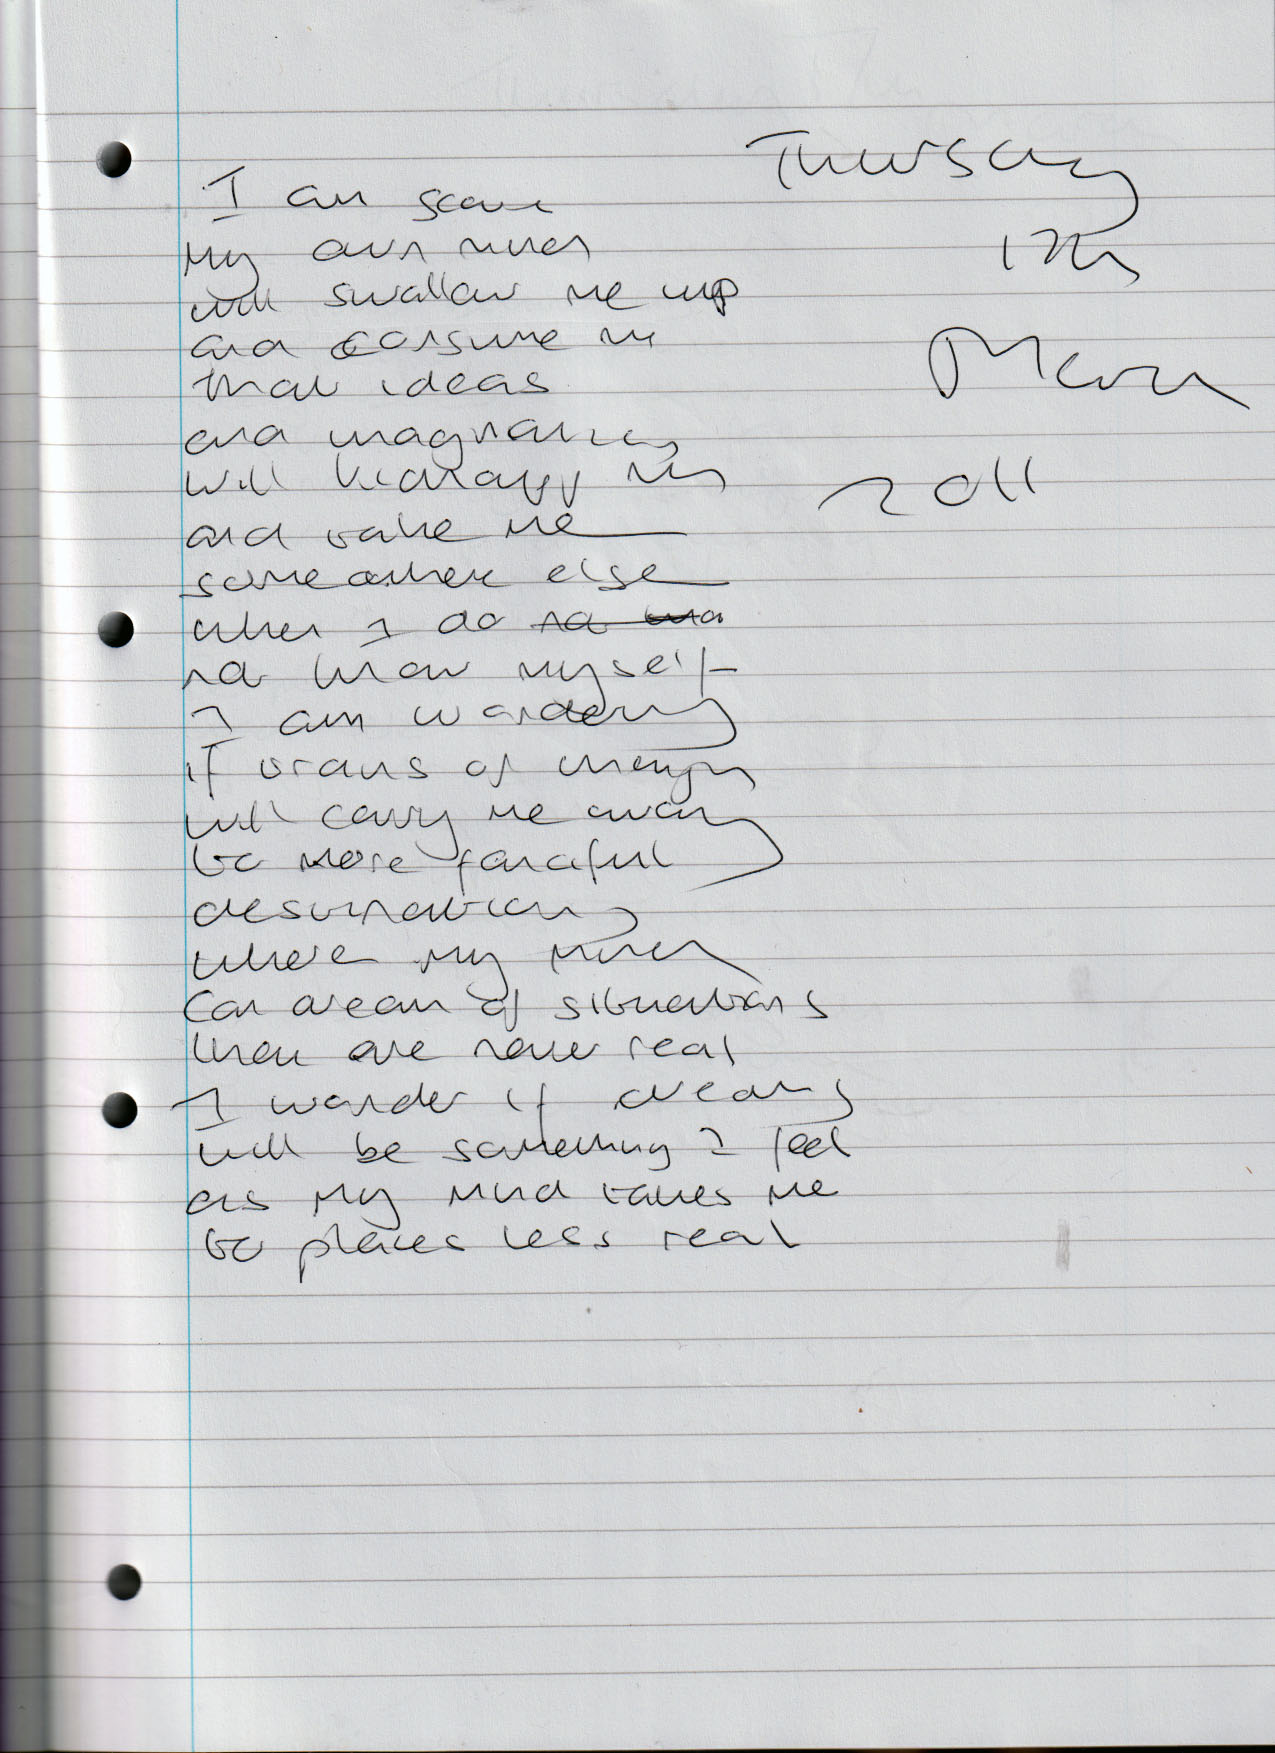 Thursday
17th
March
2011
I am scared
My own mind
will swallow me up
and consume me
that ideas
and imaginations
will kidnapp me
and take me
somewhere else
when I do
not know myself
I am wondering
if trains of thought
will carry me away
to more fanciful
destinations
where my mind
can dream of situations
that are never real
I wonder if dreams
will be something I feel
as my mind takes me
to places less real